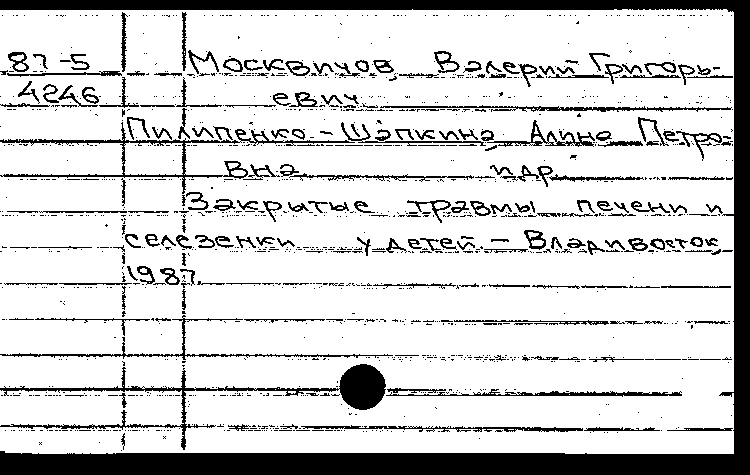 87-5 Москвичов, Валерий Григорь-
4246 евич
Пилипенко-Шапкина, Алина Петро-
вна и др.
Закрытые травмы печени и
селезенки у детей. - Владивосток,
1987.